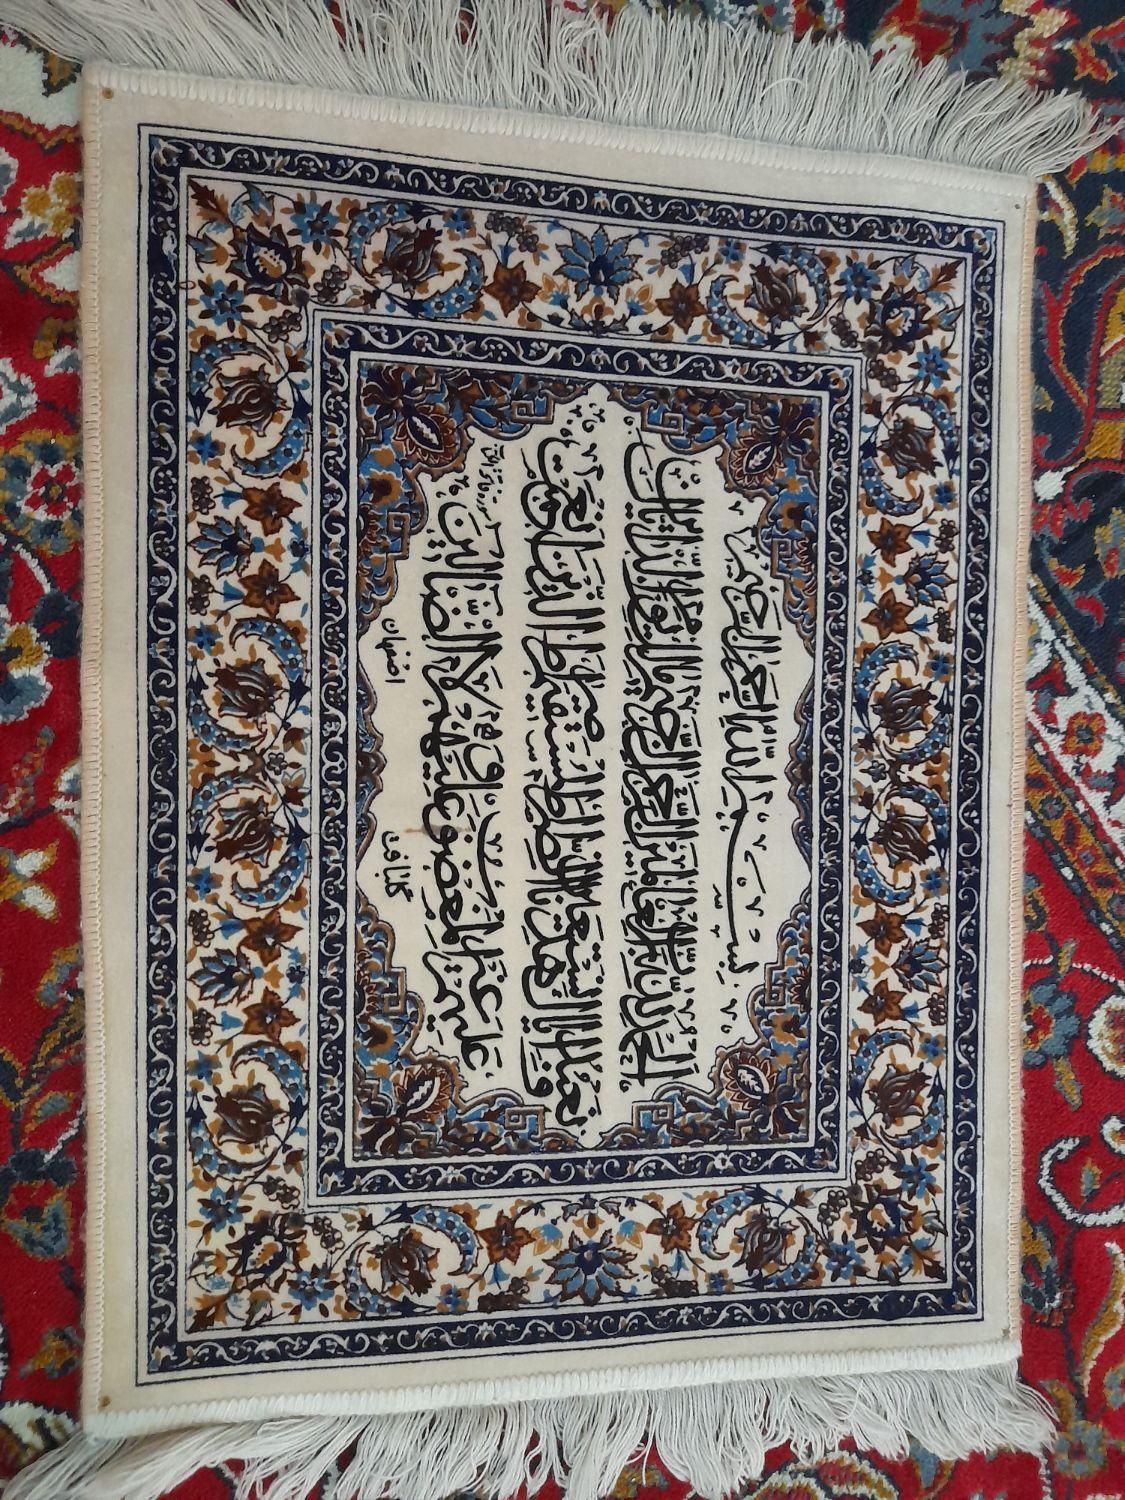 بِسْمِ اللَّهِ الرَّحْمَنِ الرَّحِيمِ
الْحَمْدُ لِلَّهِ رَبِّ الْعَالَمِينَ الرَّحْمَنِ الرَّحِيمِ مَالِكِ يَوْمِ الدِّينِ إِيَّاكَ
نَعْبُدُ وَإِيَّاكَ نَسْتَعِينُ اهْدِنَا الصِّرَاطَ الْمُسْتَقِيمَ صِرَاطَ الَّذِينَ أَنْعَمْتَ
عَلَيْهِمْ غَيْرِ الْمَغْضُوبِ عَلَيْهِمْ وَلَا الضَّالِّينَ
گلبافت اصفهان